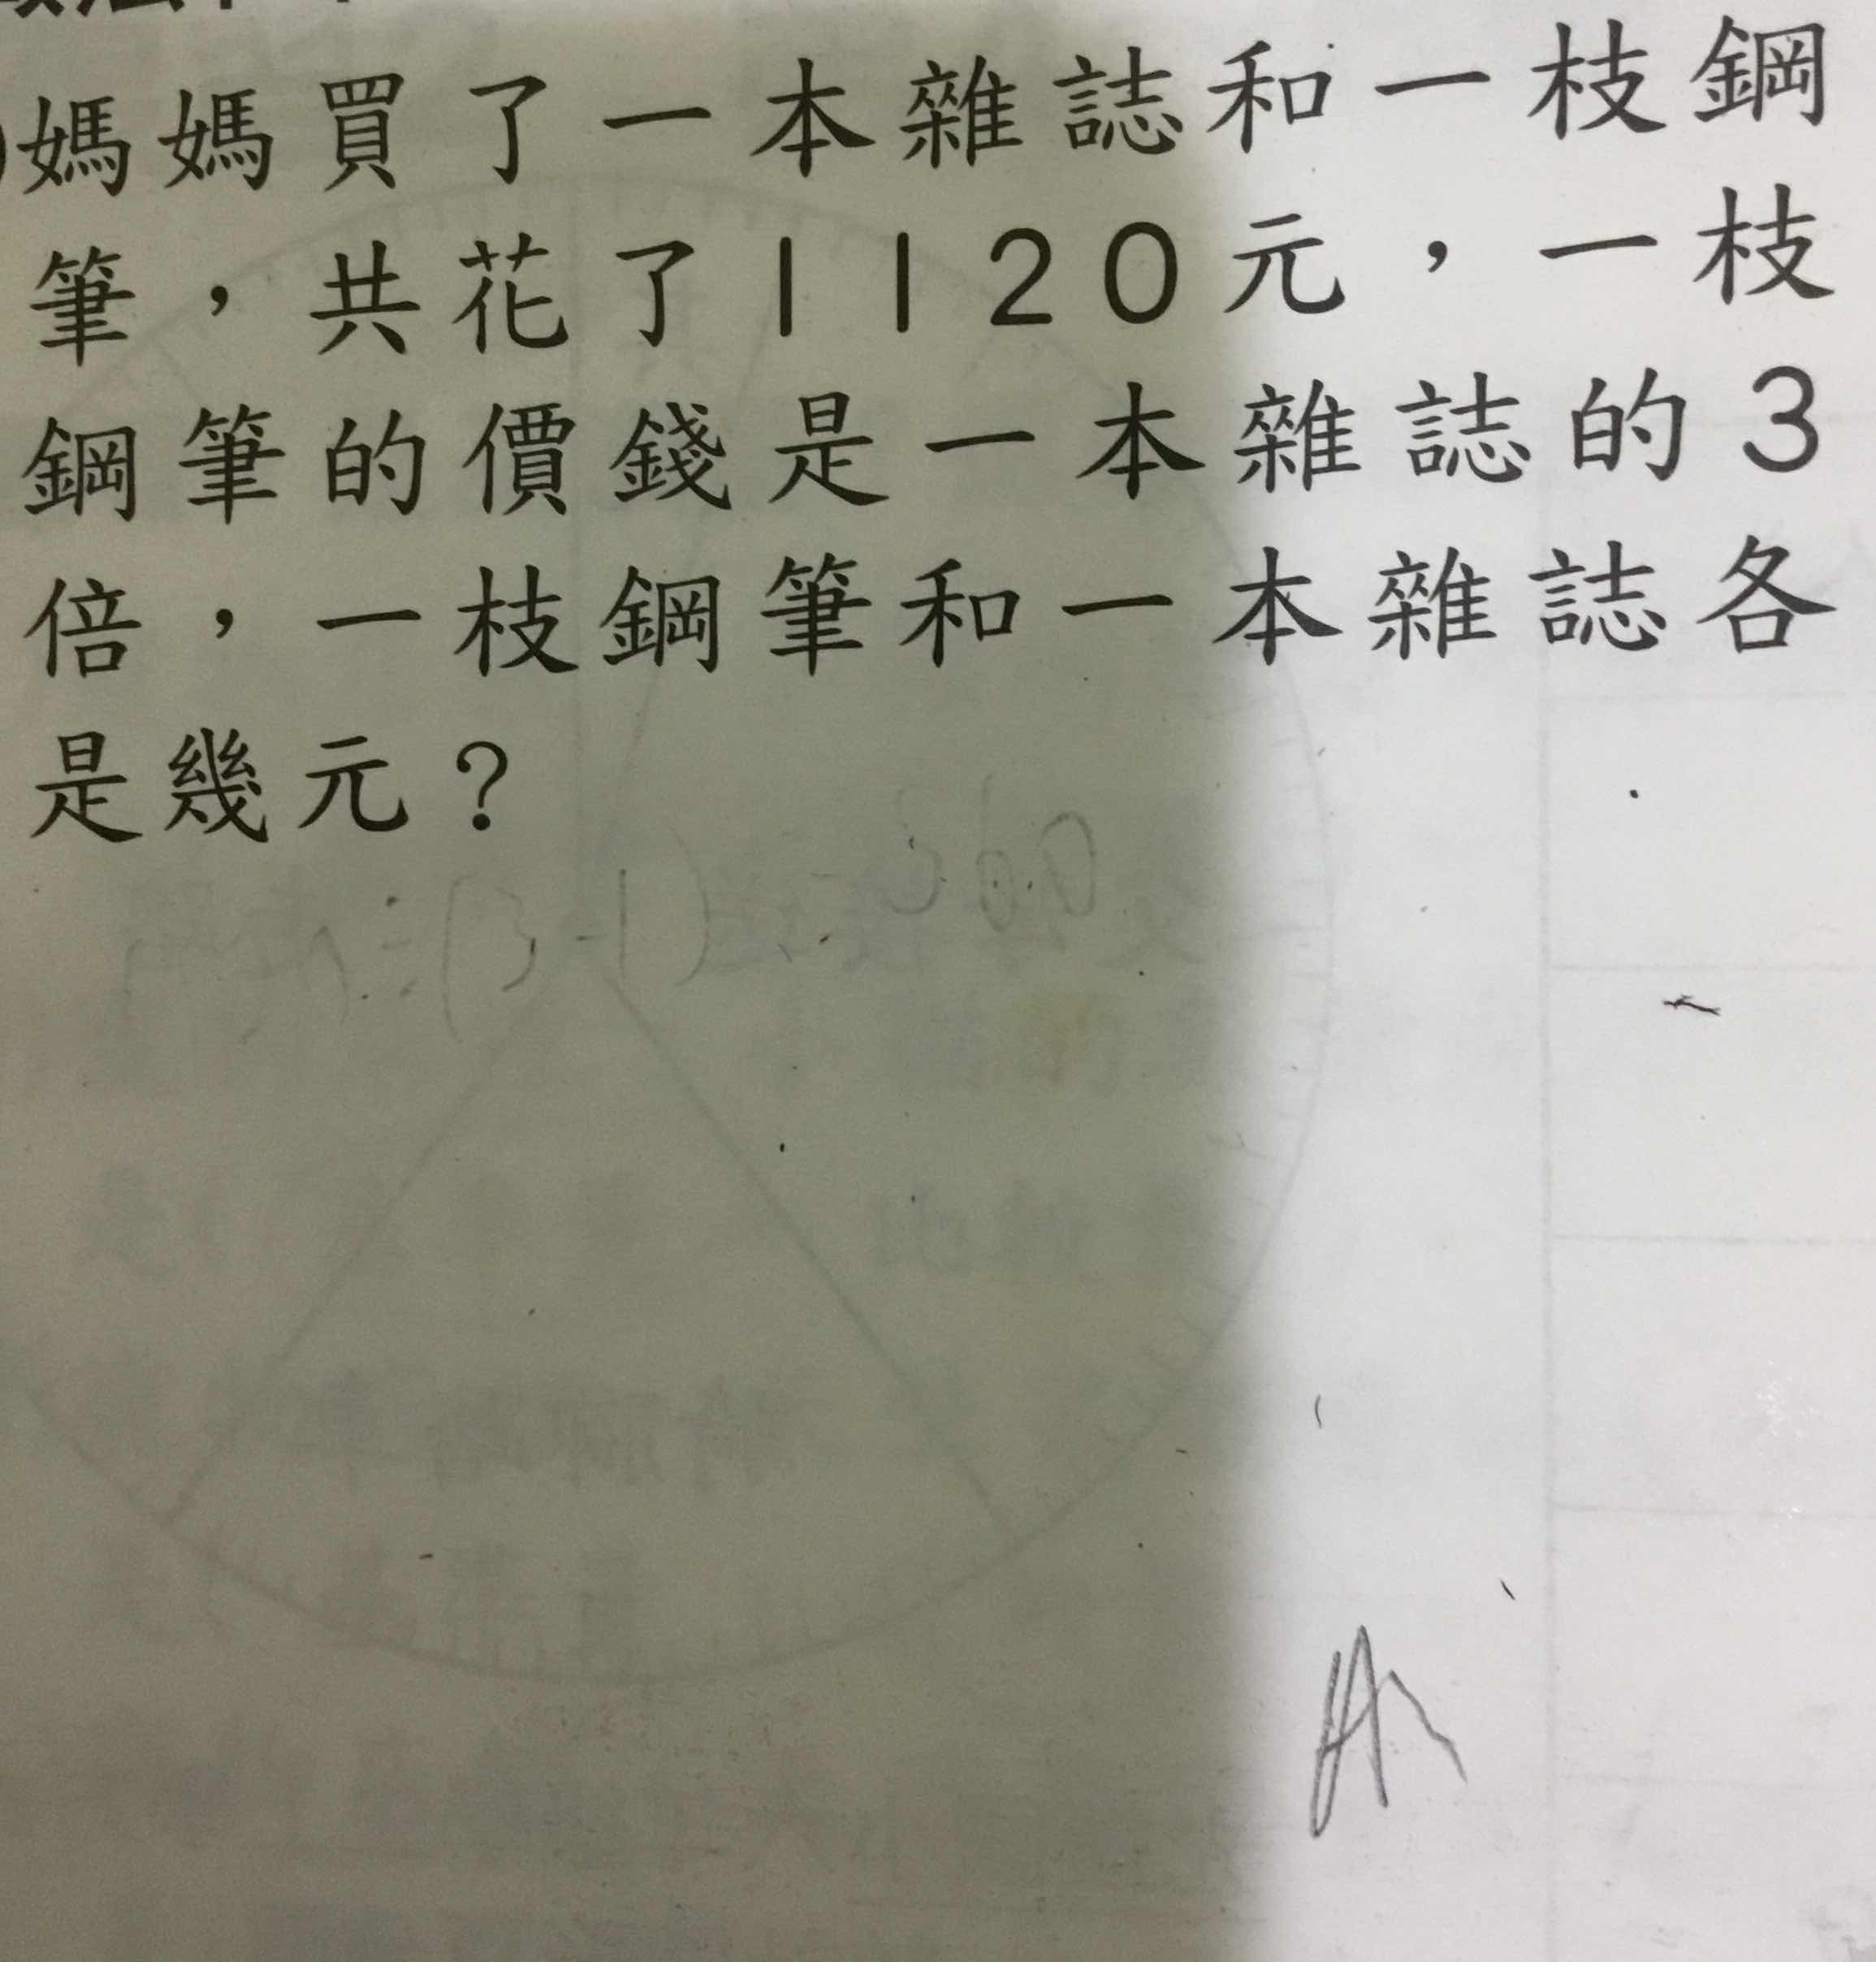 媽媽買了一本雜誌和一枝鋼
筆，共花了1120元，一枝
鋼筆的價錢是一本雜誌的3
倍，一枝鋼筆和一本雜誌各
是幾元？